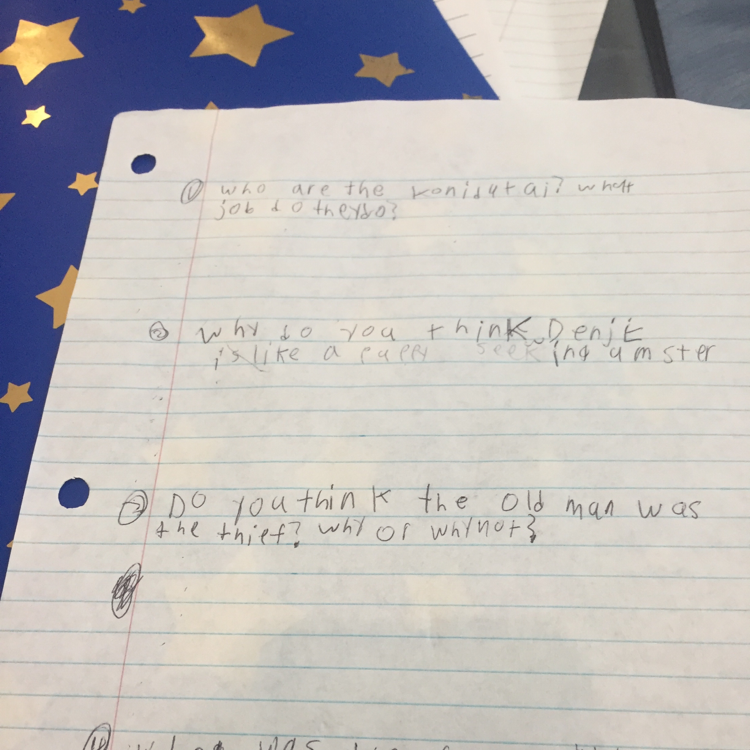 ① who are the Konisutai? whatt
job do they do?
② Why do you think Denji
is like a puppy seeking a mster
③ Do you think the old man was
the thief? why or why not?
was